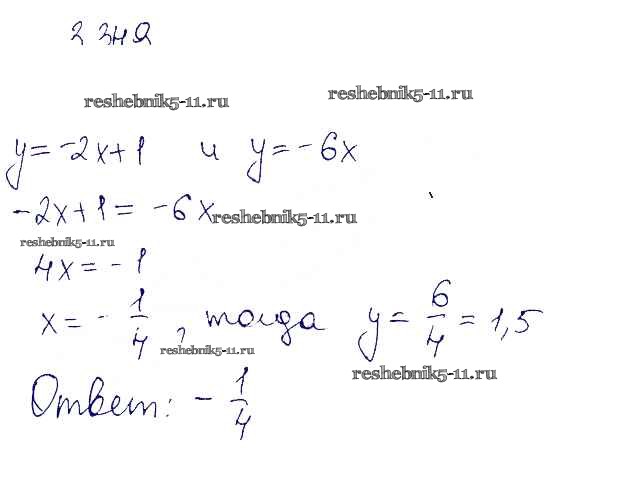 2 342
reshebnik5-11.ru
reshebnik5-11.ru
y = -2x + 1 и y = -6x
-2x + 1 = -6x
reshebnik5-11.ru
reshebnik5-11.ru
4x = -1
x = - 1/4, тогда y = 6/4 = 1,5
reshebnik5-11.ru
reshebnik5-11.ru
Ответ: - 1/4